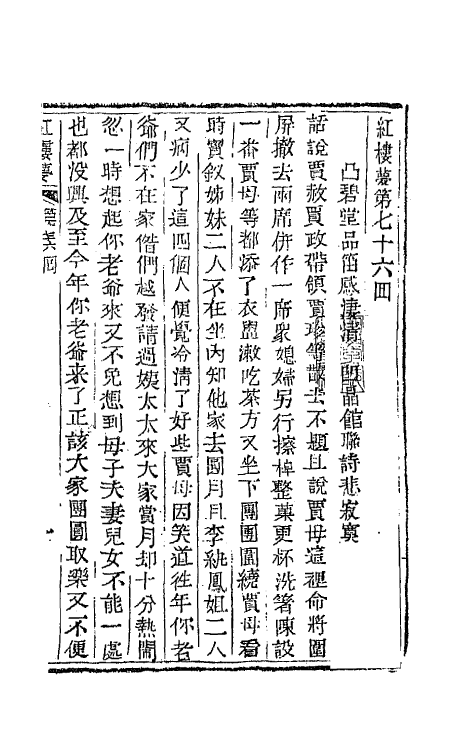 紅樓夢第七十六回
凸碧堂品笛感淒清 凹晶館聯詩悲寂寞
話說賈赦賈政帶領賈珍等散去不題且說賈母這裡命將圍
屏撤去兩席併作一席衆媳婦另行擦棹整菓更杯洗箸陳設
一番賈母等都添了衣盥漱吃茶方又坐下團團圍繞賈母看
時寳釵姊妹二人不在坐內知他家去圓月且李紈鳳姐二人
又病少了這四個人便覺冷清了好些賈母因笑道徃年你老
爺們不在家偺們越發請過姨太太來大家賞月却十分熱鬧
忽一時想起你老爺來又不免想到母子夫妻兒女不能一處
也都没興及至今年你老爺来了正該大家團圓取樂又不便
紅樓夢